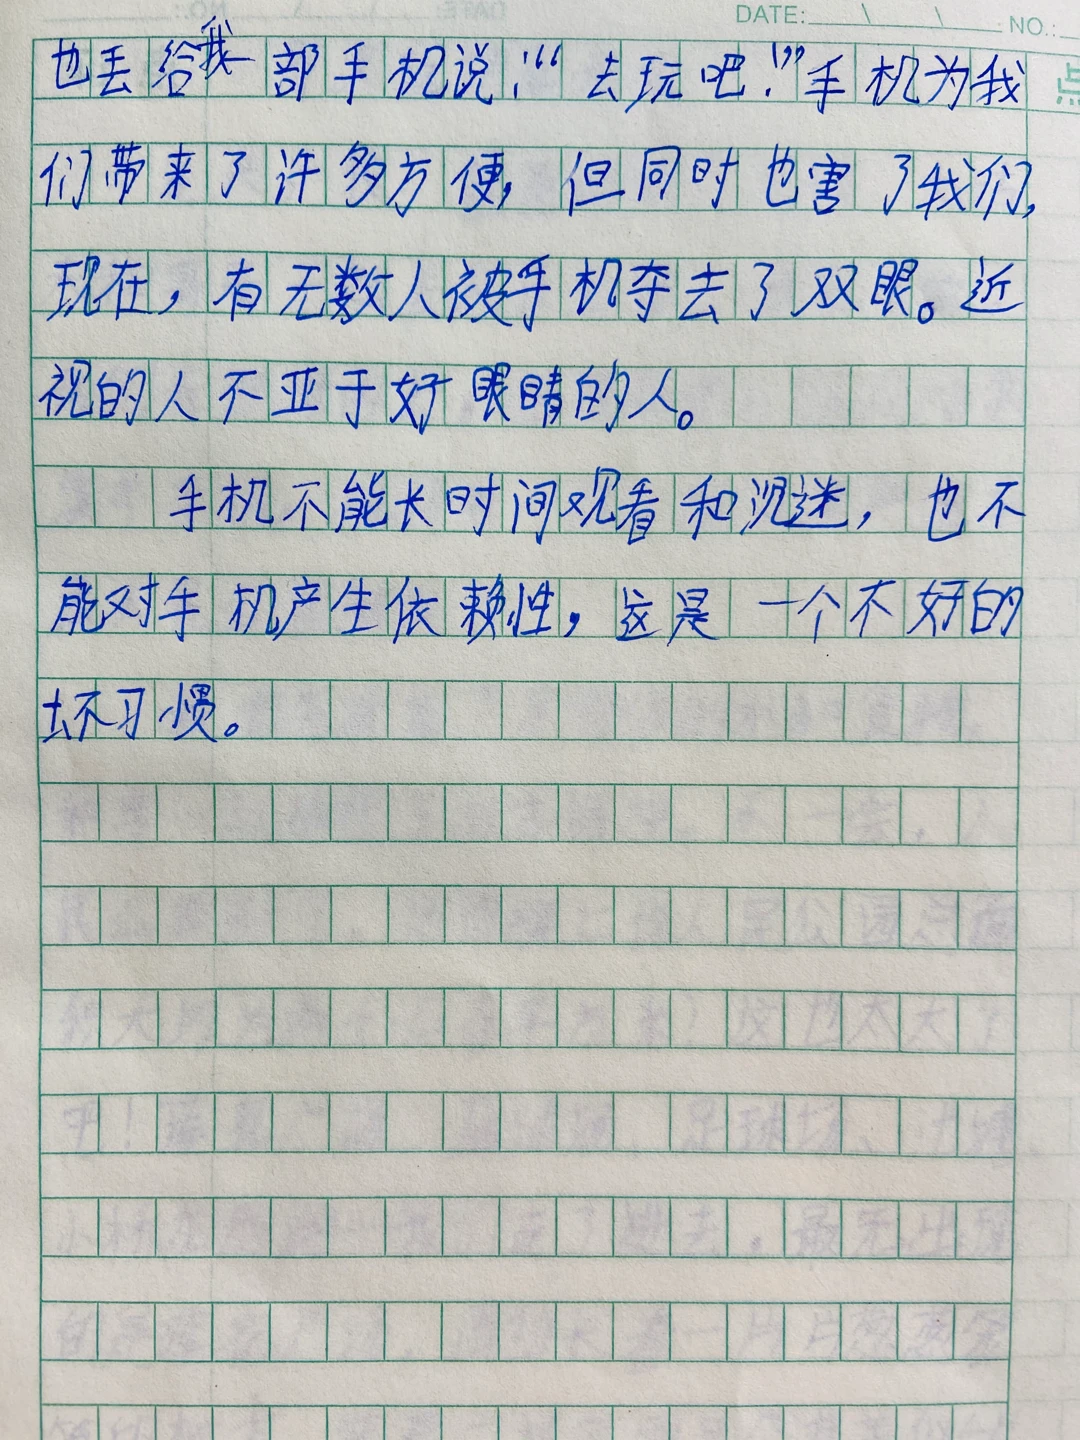 DATE: NO.:
也丢给我一部手机说:“去玩吧!”手机为我
们带来了许多方便,但同时也害了我们,
现在,有无数人被手机夺去了双眼。近
视的人不亚于好眼睛的人。
手机不能长时间观看和沉迷,也不
能对手机产生依赖性,这是一个不好的
坏习惯。